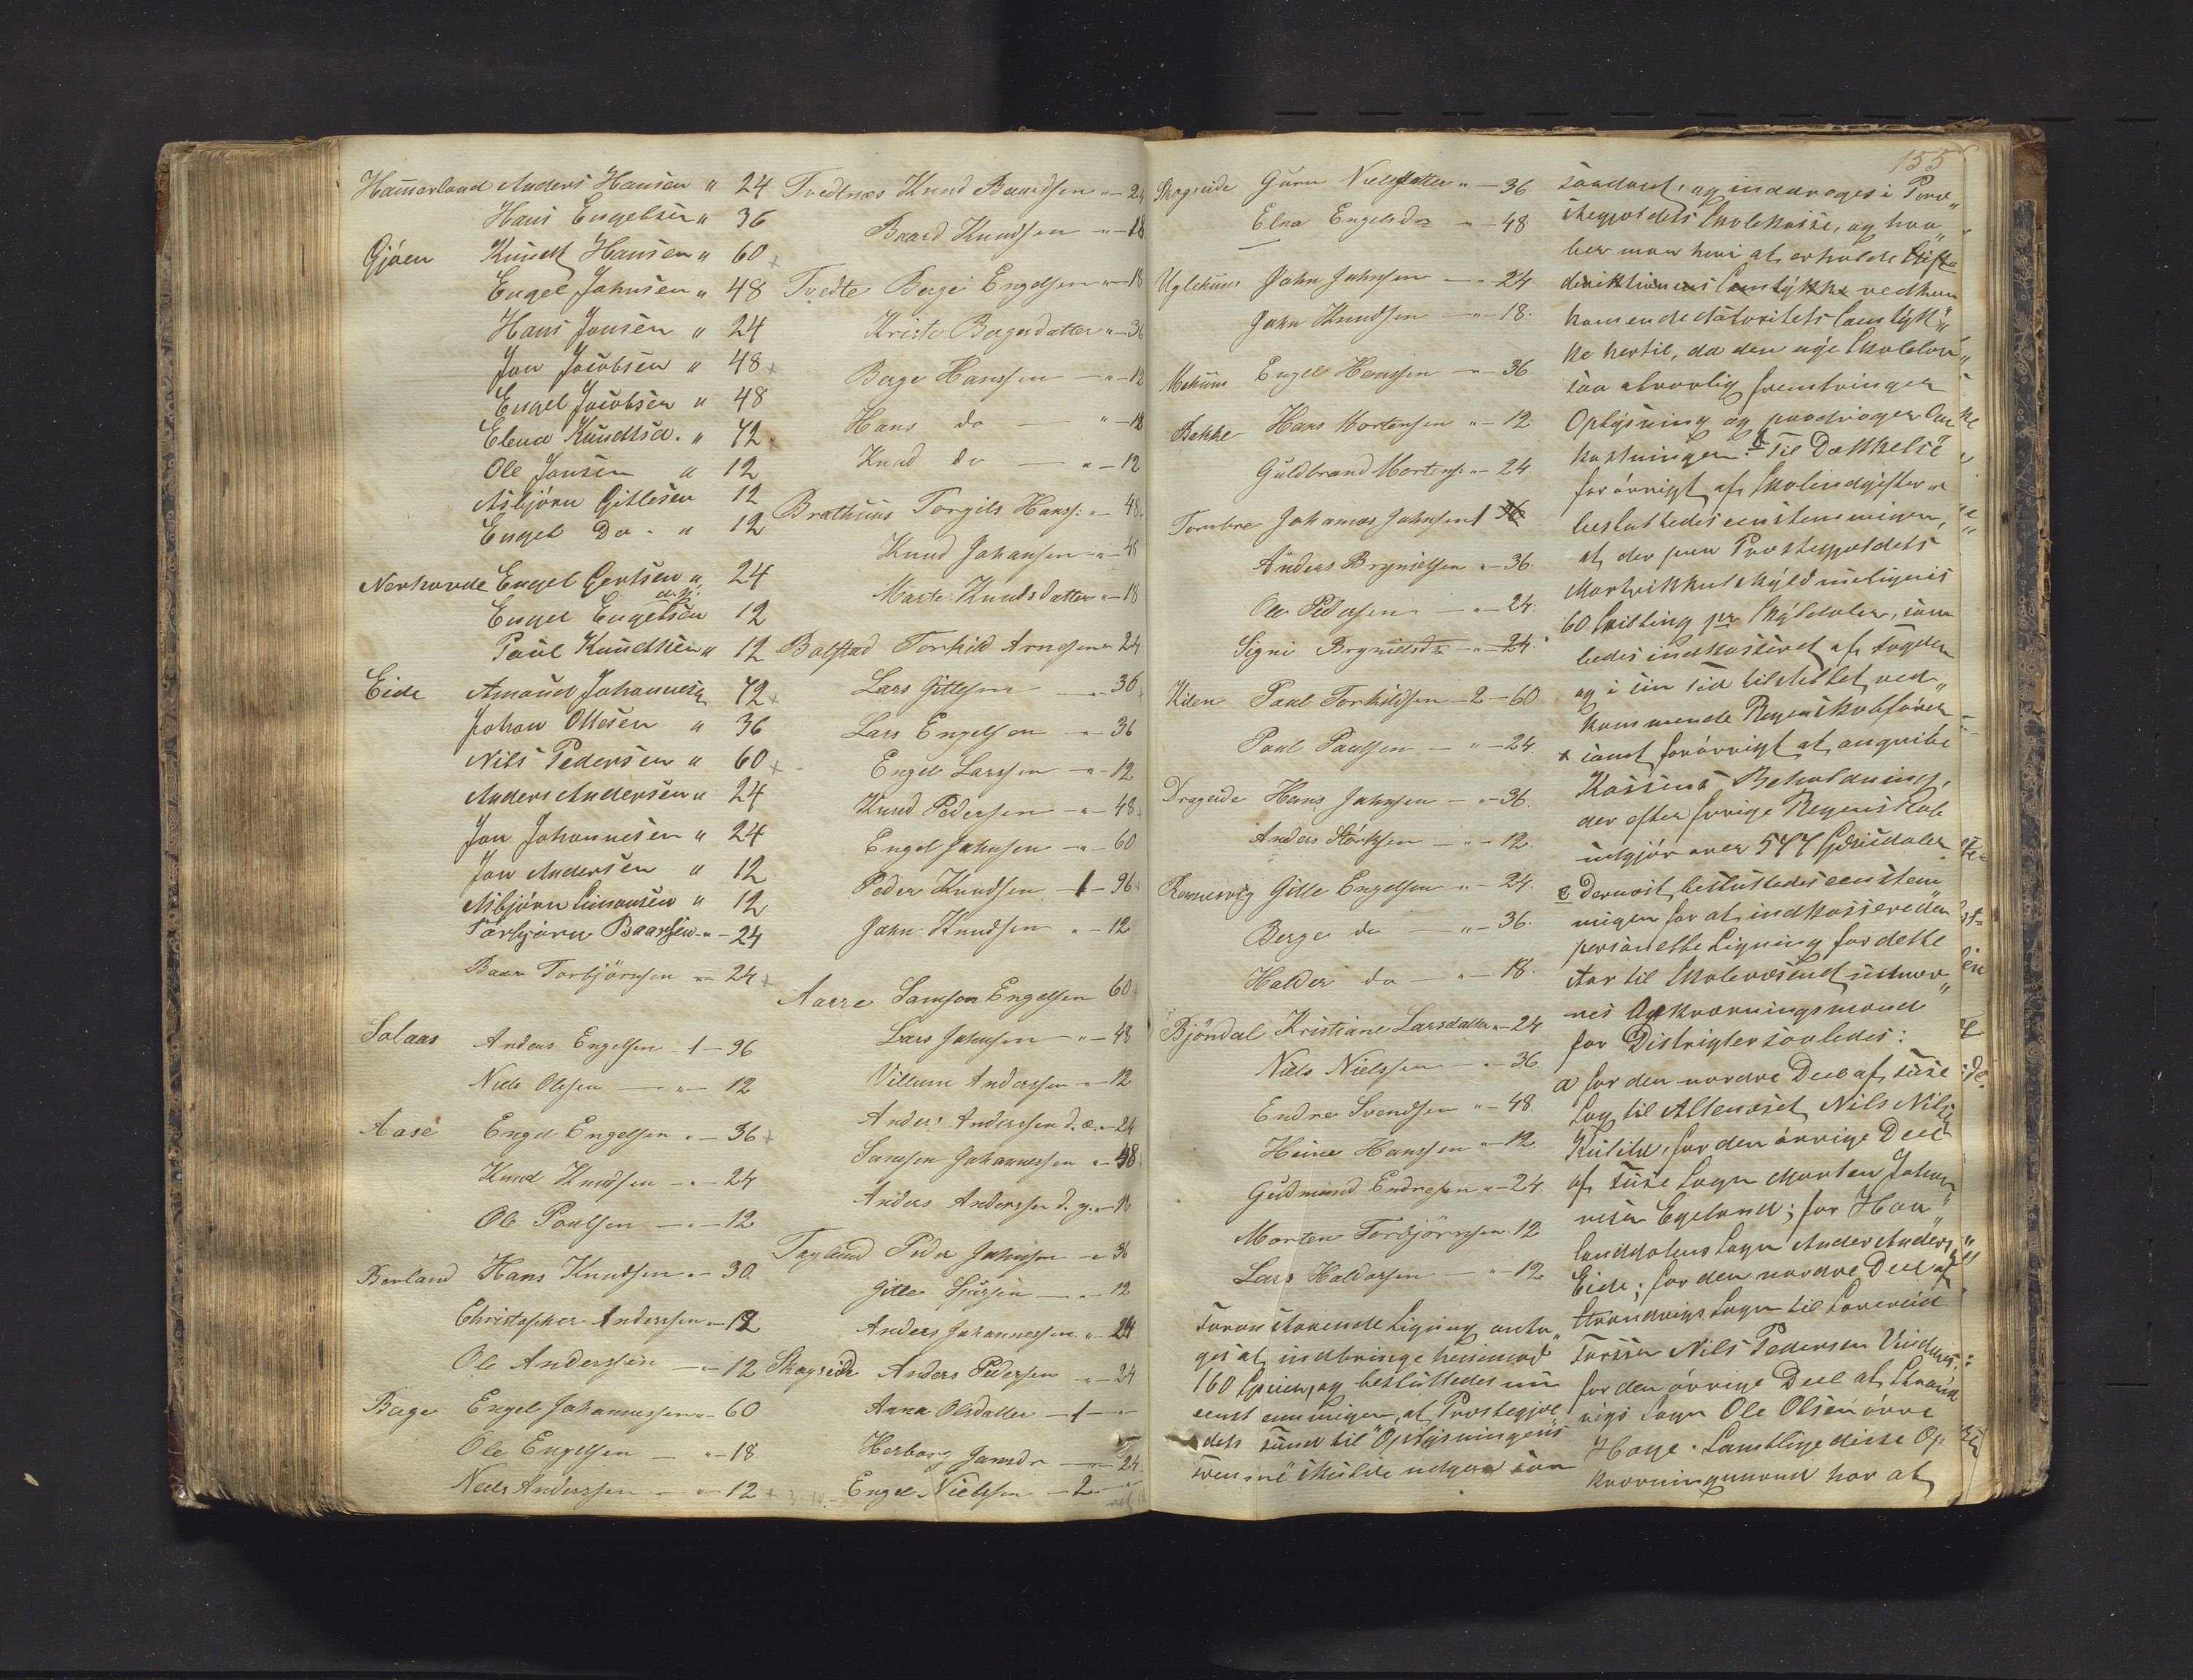 Hammerland Anders Hansen " 24
Hans Engelsen " 36
Gjøen Knudt Hansen " 60
Engel Johnsen " 48
Hans Jonsen " 24
Jon Jacobsen " 48
Engel Jacobsen " 48
Elena Knudtsd. " 72
Ole Jonsen " 12
Asbjörn Gitlesen 12
Engel Do. " 12
Nerhovde Engel Gertsen " 24
Engel Engelsen 12
Paul Knudtsen " 12
Eide Amound Johannesen 72
Johan Olsen " 36
Nils Pedersen " 60
Anders Andersen " 24
Jon Johannesen " 24
Jon Andersen " 12
Asbjörn Simonsen " 12
Torbjörn Baarsen " - 24
Baar Torbjörnsen " - 24
Solaas Anders Engelsen - 1 - 96
Niels Olsen - " - 12
Aase Engel Engelsen " - 36
Knud Knudsen - " - 24
Ole Paulsen - " - 12
Berland Hans Knudsen " - 30
Christopher Anderssen - 12
Ole Anderssen - " - 12
Berge Engel Johannessen " - 60
Ole Engelsen - " - 18
Niels Anderssen - " - 12
Tvedtnæs Knud Baardsen " - 24
Baard Knudsen " - 18
Tvedte Berge Engelsen " - 18
Kristi Bergesdatter " - 36
Berge Hanssen - " - 12
Hans do - " - 12
Knud do - " - 12
Brathuus Torgils Hanss: " - 48
Knud Johansen " - 48
Marte Knudsdatter " - 18
Bolstad Torkild Arnesen " 24
Lars Gitlesen - " - 36
Lars Engelsen - " - 36
Engel Larssen - " - 12
Knud Pedersen - " - 48
Engel Johnsen - " - 60
Peder Knudsen - 1 - 96
John Knudsen " - 12
Aarre Samson Engelsen 60
Lars Johnsen " - 48
Villum Anderssen " - 12
Anders Anderssen d. æ. - 24
Samson Johannessen " - 48
Anders Anderssen d. y. " - 18
Tøgland Peder Johnsen " 36
Gitle Sjursen - " - 12
Anders Johannessen " - 24
Skogseide Anders Pedersen " - 24
Anna Olsdatter - 1 - "
Herborg Jonsdr - " - 24
Engel Nielssen - 2 - "
155
Skogseide Guru Nielsdatter " - 36
Elna Engelsdr " - 48
Uglehuus John Johnsen - " 24
John Knudsen - " - 18.
Mehuus Engel Hanssen - " - 36
Bekke Hans Mortensen " - 12
Guldbrand Mortens: " - 24
Tombre Johannes Johnsen 1 36
Anders Brynielsen " - 36.
Ole Pedersen - " - 24.
Signi Brynielsdr - " - 24.
Kilen Paul Torkildsen - 2 - 60
Paul Paulsen - " - 24.
Drageide Hans Johnsen - " - 36.
Anders Størksen - " - 12.
Rennesvig Gitle Engelsen - " - 24.
Berge do - " - 36.
Haldor do - " - 18.
Bjöndal Kristiane Larsdatter " - 24
Niels Nielssen - " - 36.
Endre Svendsen " - 48
Heine Hanssen " - 12.
Gudmund Endresen " - 24.
Morten Torbjörnsen " 12
Lars Haldorsen - " - 12
Foranstaaende Ligning anta„
ges at indbringe henimod
160 Spdlr, og besluttedes nu
eenstemmigen, at Præstegjæl
dets Fund til "Oplysningens
Fremme" skulde udgaa som
saadant, og inddrages i Præ„
stegjældets Skolekasse, og haa„
ber man heri at erholde Stifts
direktionens Samtykke vedkom
homende Autoritets Samtyk„
ke hertil, da den nye Skolelov
saa alvorlig fremtvinger
Oplysning og paadrager Om
kostninger. Til Dækkelse
forövrigt af Skoleudgifterne
besluttedes eenstemmigen,
at der paa Præstegjældets
Matrikkulskyld udlignes
60 Skilling pr Skylddaler, som
ledes indkasseret af Fogden
og i sin Tid tilstillet ved„
kommende Regnskabsfører
x samt forövrigt at angribe
Kassens Beholdning,
der efter forrige Regnskab
udgjør over 547 Speciedaler.
Dernæst besluttedes eenstem„
migen for at indkassere den
personelle Ligning for dette
Aar til Skolevæsenet udnæv„
nes Opkrævningsmænd
for Distrigter saaledes:
a for den nordre Deel af Fuse
Sogn til Altenæset Nils Nils
Kulild, for den övrige Deel
af Fuse Sogn Morten Johan„
nesen Egeland; for Haa„
landdalens Sogn Anders Anders
Eide; for den nordre Deel af
Strandvigs Sogn til Sævereid
Forssen Nils Pedersen Vinden
for den övrige Deel af Strand
vigs Sogn Ole Olsen övre
Hope. Samtlige disse Op
krævningsmænd har at